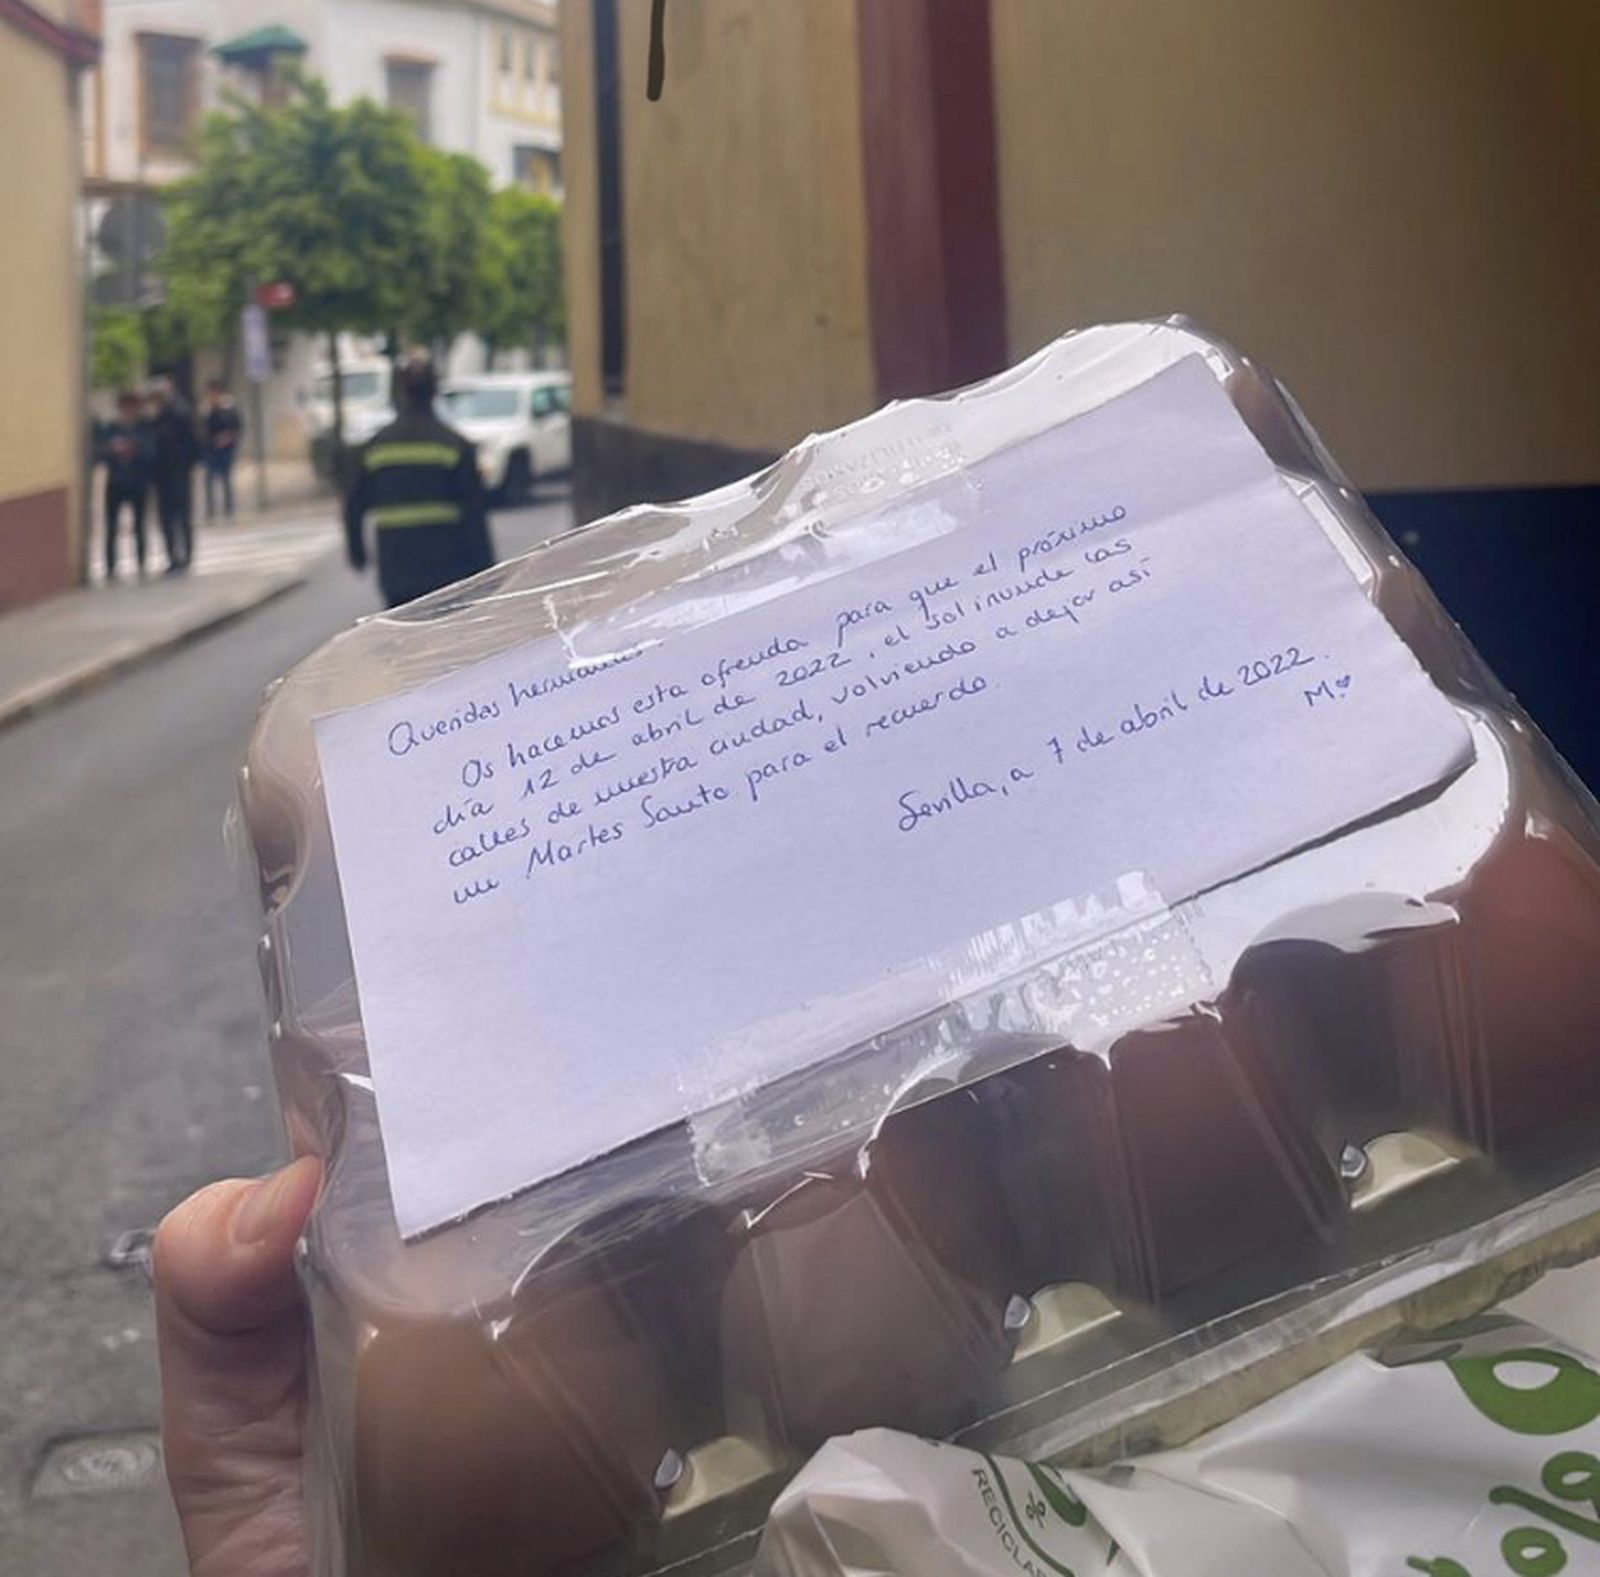 Queridas hermanas:
Os hacemos esta ofrenda para que el próximo
día 12 de abril de 2022, el sol inunde las
calles de nuestra ciudad, volviendo a dejar así
un Martes Santo para el recuerdo.
Sevilla, a 7 de abril de 2022.
M.
RECICLA
%